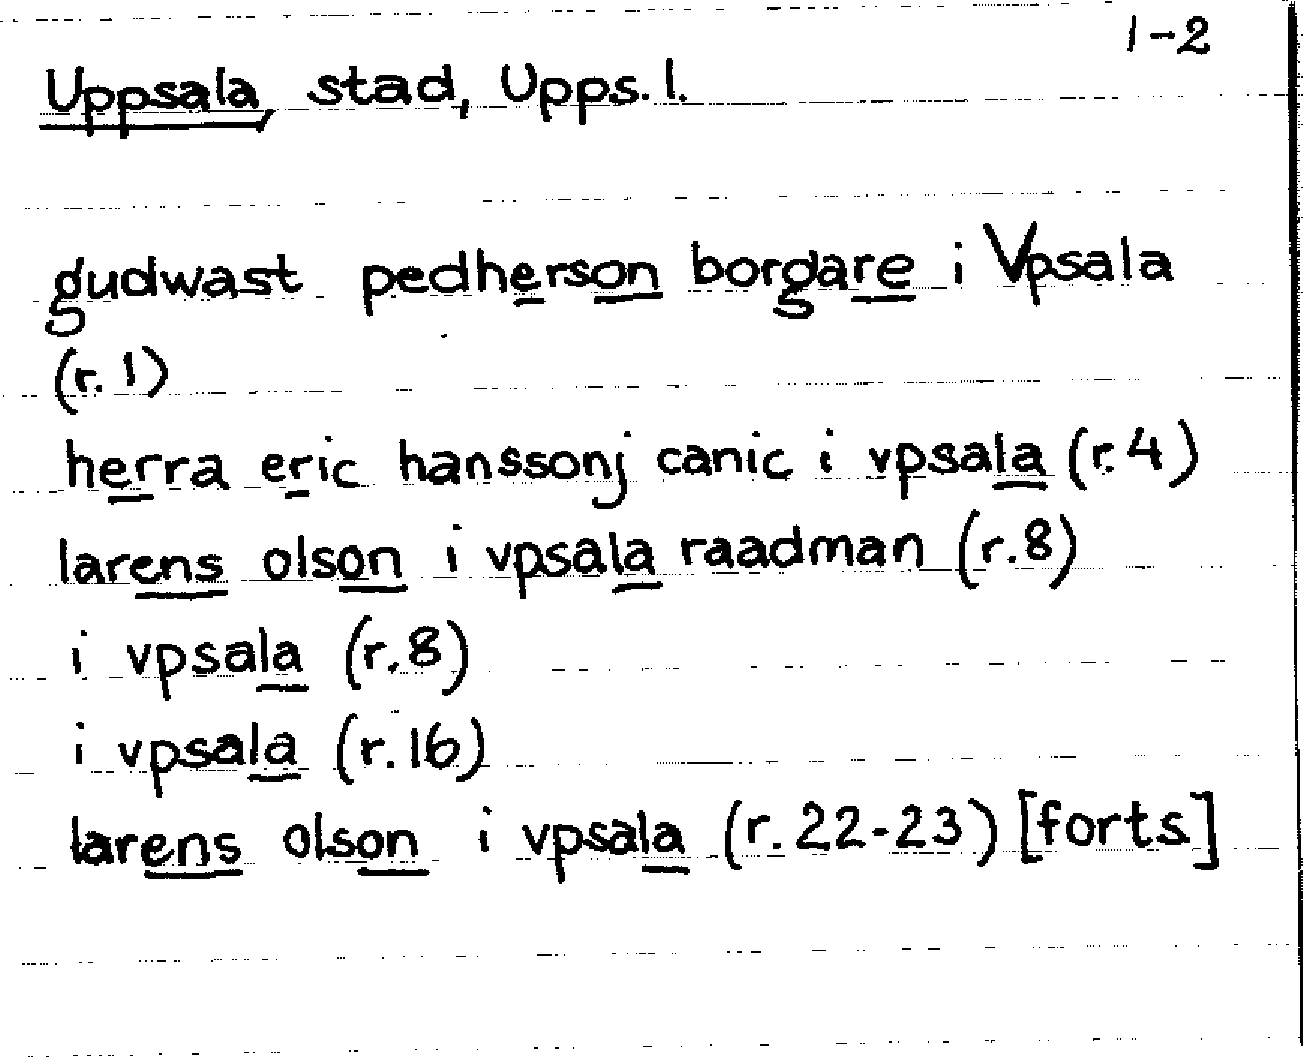 1-2
Uppsala, stad, Upps. l.
gudwast pedherson borgare i Vpsala
(r. 1)
herra eric hanssonj canic i vpsala (r. 4)
larens olson i vpsala raadman (r. 8)
i vpsala (r. 8)
i vpsala (r. 16)
larens olson i vpsala (r. 22-23) [forts]